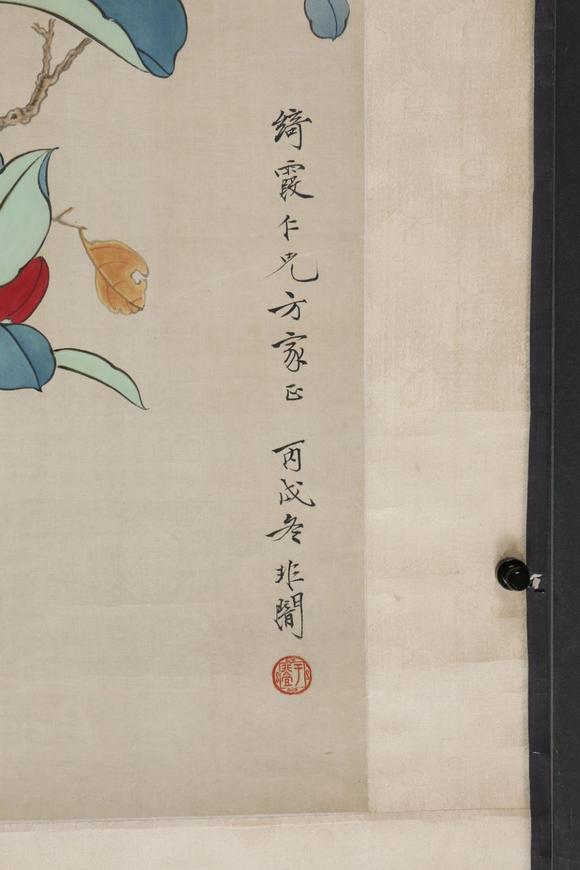 綺霞仁兄方家正 丙戌冬非闇